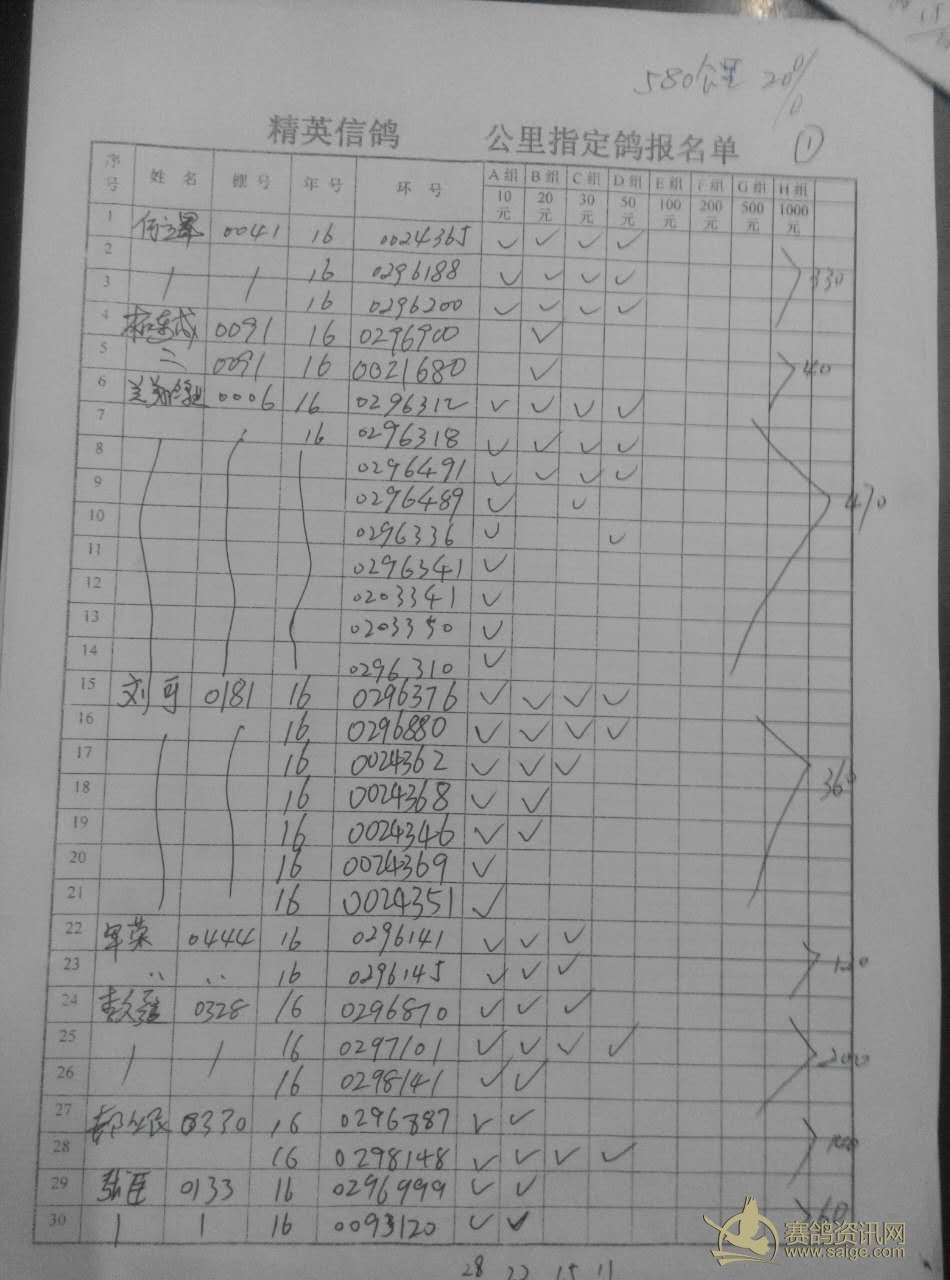 580公里 20%
精英信鸽 公里指定鸽报名单 ①
序号 姓名 棚号 年号 环号 A组 B组 C组 D组 E组 F组 G组 H组
10元 20元 30元 50元 100元 200元 500元 1000元
1 0041 16 0024365 ✓ ✓ ✓ ✓
2 / / 16 0296188 ✓ ✓ ✓ ✓ 330
3 16 0296200 ✓ ✓ ✓ ✓
4 0091 16 0296900 ✓
5 0091 16 0021680 ✓ 40
6 0006 16 0296312 ✓ ✓ ✓ ✓
7 16 0296318 ✓ ✓ ✓ ✓
8 0296491 ✓ ✓ ✓ ✓
9 0296489 ✓ ✓ 470
10 0296336 ✓ ✓
11 0296341 ✓
12 0203341 ✓
13 0203350 ✓
14 0296310 ✓
15 刘可 0181 16 0296376 ✓ ✓ ✓ ✓
16 16 0296880 ✓ ✓ ✓ ✓
17 16 0024362 ✓ ✓ ✓
18 16 0024368 ✓ ✓ 360
19 16 0024346 ✓ ✓
20 16 0024369 ✓
21 16 0024351 ✓
22 军荣 0444 16 0296141 ✓ ✓ ✓
23 16 0296145 ✓ ✓ ✓ 120
24 0328 16 0296870 ✓ ✓ ✓
25 / / 16 0297101 ✓ ✓ ✓ ✓ 200
26 16 0298141 ✓ ✓
27 0330 16 0296887 ✓ ✓
28 16 0298148 ✓ ✓ ✓ ✓
29 张臣 0133 16 0296999 ✓ ✓
30 | | 16 0093120 ✓ ✓ 60
28 22 15 11
赛鸽资讯网
www.saige.com